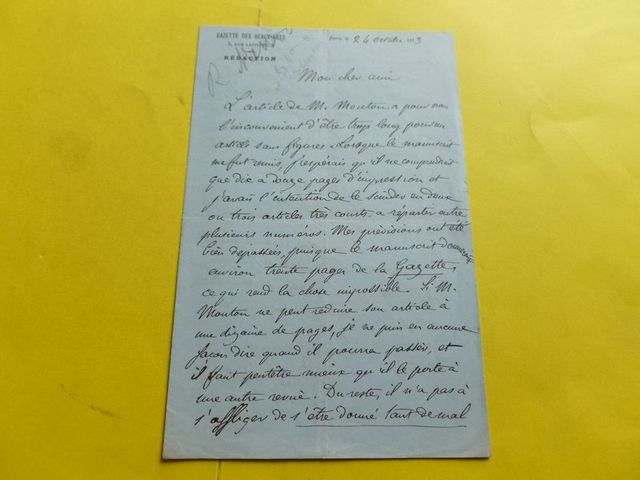 GAZETTE DES BEAUX-ARTS
RÉDACTION
24 octobre
Mon cher ami
L'article de M. Mouton a pour nous
l'inconvenient d'être trop long pour un
article sans figures. Lorsque le manuscrit
me fut remis, j'espérais qu'il ne comprendrait
que dix à douze pages d'impression et
j'avais l'intention de le scinder en deux
ou trois articles très courts, a répartir entre
plusieurs numéros. Mes prévisions ont été
bien dépassées, puisque le manuscrit donnerait
environ trente pages de la Gazette,
ce qui rend la chose impossible. Si M.
Mouton ne peut réduire son article à
une dizaine de pages, je ne puis en aucune
façon dire quand il pourra passer, et
il faut peutêtre mieux qu'il le porte à
une autre revue. Du reste, il n'a pas à
s'affliger de s'être donné tant de mal